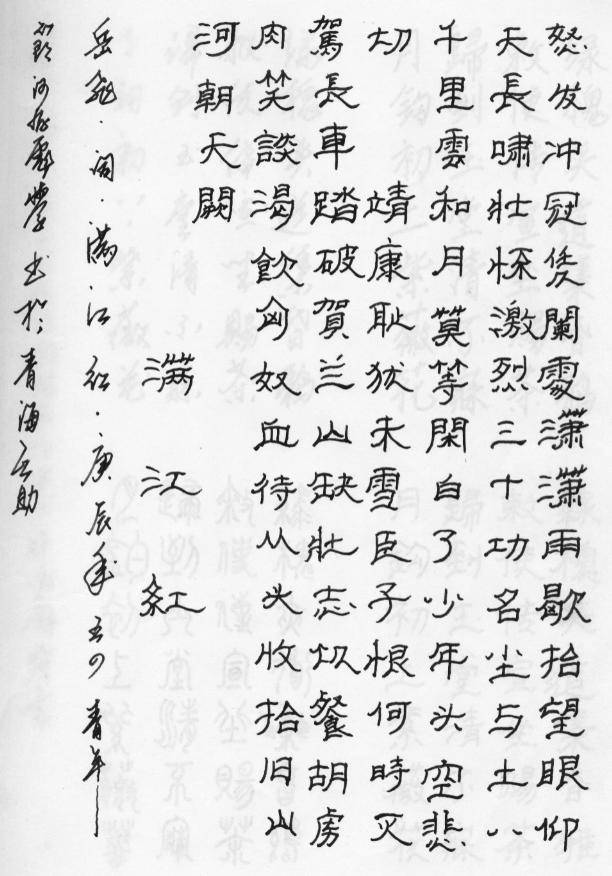 怒发冲冠凭闌處潇潇雨歇抬望眼仰
天長嘯壮怀激烈三十功名尘与土八
千里雲和月莫等閑白了少年头空悲
切 靖康耻犹未雪臣子恨何時灭
駕長車踏破賀兰山缺壮志饥餐胡虏
肉笑談渴飲匈奴血待从头收拾旧山
河朝天闕
满江紅
岳飛·词·滿·江·红·庚辰年五四青年
节 书于青海互助